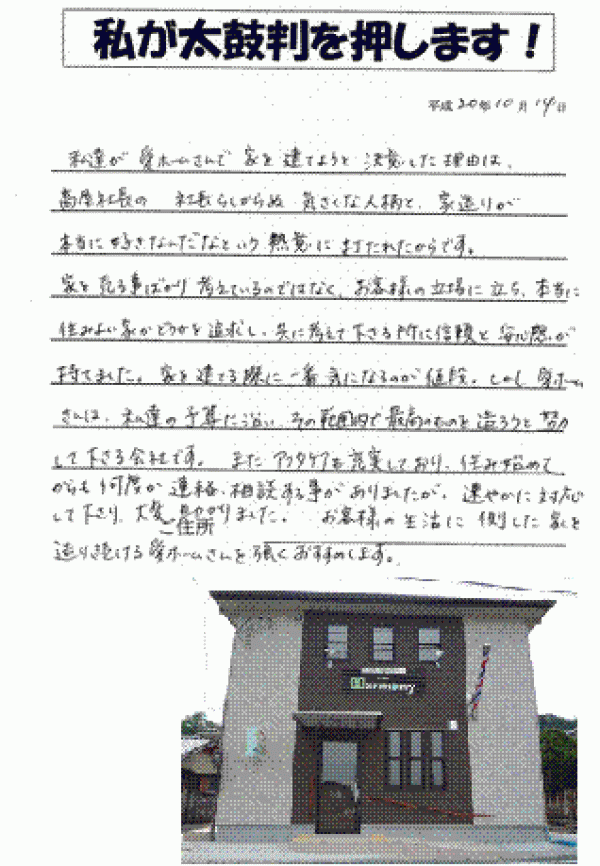 私が太鼓判を押します！
平成20年10月14日
私達が 愛ホームさんで 家を建てようと 決意した理由は、
高原社長の 社長らしからぬ 気さくな人柄と、家造りが
本当に好きなんだなという熱意に打たれたからです。
家を売る事ばかり考えているのではなく、お客様の立場に立ち、本当に
住みよい家かどうかを追求し、共に考えて下さる所に信頼と安心感が
持てました。家を建てる際に一番気になるのが値段。しかし愛ホーム
さんは、私達の予算に沿い、その範囲内で最高のものを造ろうと努力
して下さる会社です。またアフタケアも充実しており、住み始めて
からも何度か連絡・相談する事がありましたが、速やかに対応
して下さり、大変助かりました。お客様の生活に則した家を
ご住所
造り続ける愛ホームさんを強くおすすめします。
Harmony